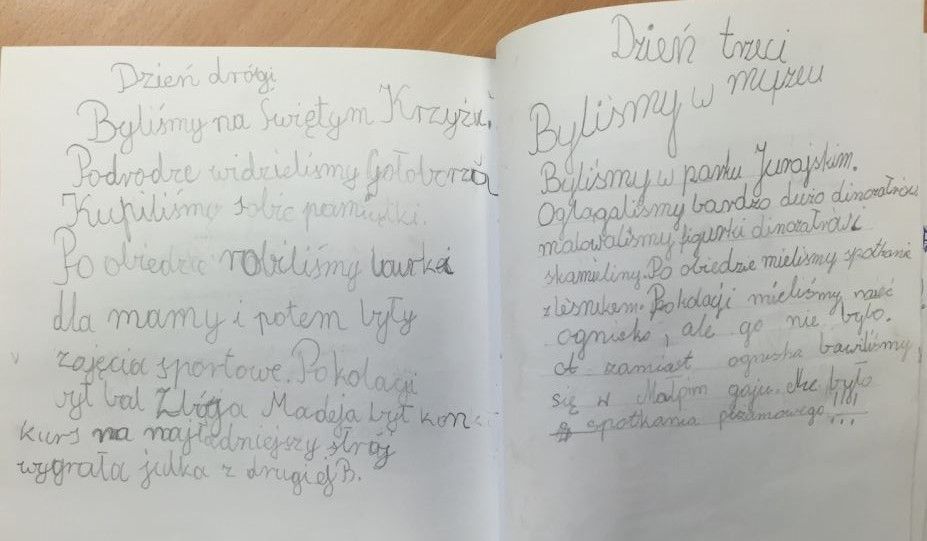 Dzień drógi
Byliśmy na Świętym Krzyżu.
Podrodze widzieliśmy Gołoborza
Kupiliśmy sobie pamiątki.
Po obiedzie robiliśmy laurkei
dla mamy i potem były
zajęcia sportowe. Po kolacji
był bal Zbója Madeja był kon-
kurs na najładniejszy strój
wygrała julka z drugiej B.
Dzień trzeci
Byliśmy w muzeu
Byliśmy w parku Jurajskim.
Oglągaliśmy bardzo dużo
malowaliśmy figurki
skamieliny. Po obiedzie mieliśmy spotkanie
z leśnikem. Po kolacji mieliśmy mieć
ognisko, ale go nie było.
A zamiast ogniska bawiliśmy
się w Małpim gaju. Nie było
spotkania